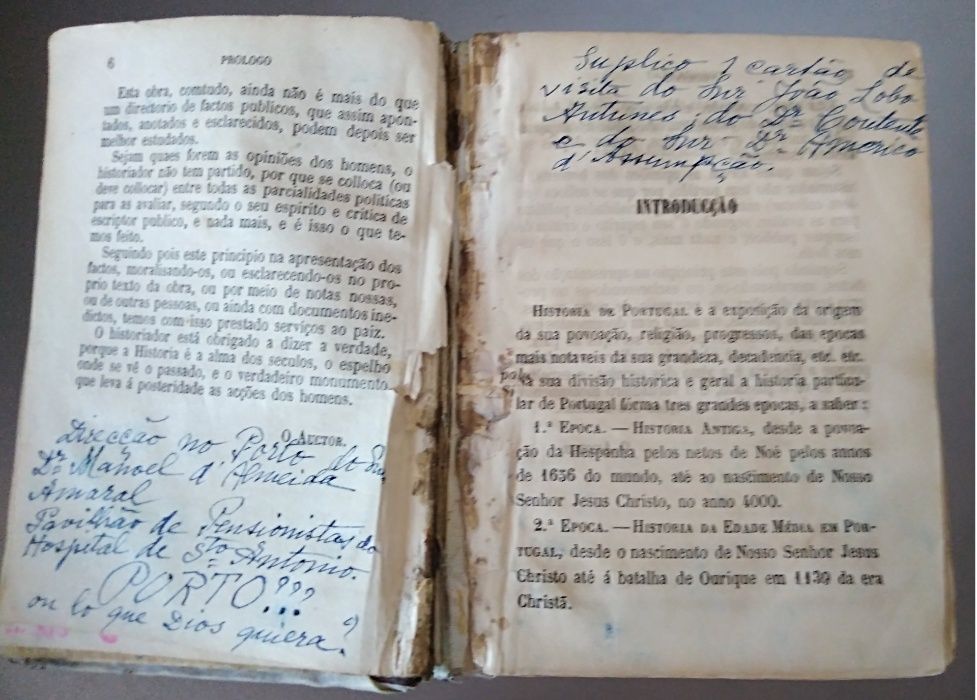 6 PROLOGO
Esta obra, comtudo, ainda não é mais do que
um directorio de factos publicos, que assim apon-
tados, anotados e esclarecidos, podem depois ser
melhor estudados.
Sejam quaes forem as opiniões dos homens, o
historiador não tem partido, por que se colloca (ou
deve collocar) entre todas as parcialidades politicas
para as avaliar, segundo o seu espirito e critica de
escriptor publico, e nada mais, e é isso o que te-
mos feito.
Seguindo pois este principio na apresentação dos
factos, moralisando-os, ou esclarecendo-os no pro-
prio texto da obra, ou por meio de notas nossas,
ou de outras pessoas, ou ainda com documentos ine-
dictos, temos com isso prestado serviços ao paiz.
O historiador está obrigado a dizer a verdade,
porque a Historia é a alma dos seculos, o espelho
onde se vê o passado, e o verdadeiro monumento
que leva á posteridade as acções dos homens.
O AUCTOR.
Direcção no Porto do Snr.
Dr. Manoel d'Almeida
Amaral
Pavilhão de Pensionistas do
Hospital de Sto Antonio.
PORTO???
ou lo que Dios quiera?
Suplico 1 cartão de
visita do Snr João Lobo
Antunes, do Dr. Contente
e do Snr Dr. Americo
d'Assumpção.
INTRODUCÇÃO
HISTORIA DE PORTUGAL é a exposição da origem
da sua povoação, religião, progressos, das epocas
mais notaveis da sua grandeza, decadencia, etc. etc.
Na sua divisão historica e geral a historia particu-
lar de Portugal fórma tres grandes epocas, a saber:
1.ª EPOCA. — HISTORIA ANTIGA, desde a povoa-
ção da Hespanha pelos netos de Noé pelos annos
de 1656 do mundo, até ao nascimento de Nosso
Senhor Jesus Christo, no anno 4000.
2.ª EPOCA. — HISTORIA DA EDADE MÉDIA EM POR-
TUGAL, desde o nascimento de Nosso Senhor Jesus
Christo até á batalha de Ourique em 1139 da era
Christã.